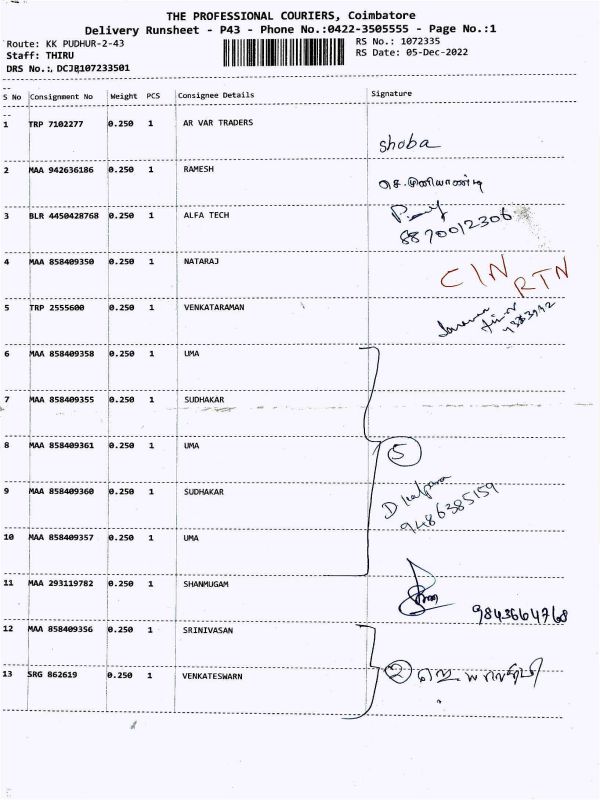 THE PROFESSIONAL COURIERS, Coimbatore
Delivery Runsheet - P43 - Phone No.:0422-3505555 - Page No.:1
Route: KK PUDHUR-2-43 RS No.: 1072335
Staff: THIRU RS Date: 05-Dec-2022
DRS No.: DCJB107233501
S No Consignment No Weight PCS Consignee Details Signature
1 TRP 7102277 0.250 1 AR VAR TRADERS
shoba
2 MAA 942636186 0.250 1 RAMESH
செ.முனியாண்டி
3 BLR 4450428768 0.250 1 ALFA TECH
8870012306
4 MAA 858409350 0.250 1 NATARAJ
CIN RTN
5 TRP 2555600 0.250 1 VENKATARAMAN
6 MAA 858409358 0.250 1 UMA
7 MAA 858409355 0.250 1 SUDHAKAR
8 MAA 858409361 0.250 1 UMA
5
9 MAA 858409360 0.250 1 SUDHAKAR
9486385159
10 MAA 858409357 0.250 1 UMA
11 MAA 293119782 0.250 1 SHANMUGAM
9843664768
12 MAA 858409356 0.250 1 SRINIVASAN
13 SRG 862619 0.250 1 VENKATESWARN
2